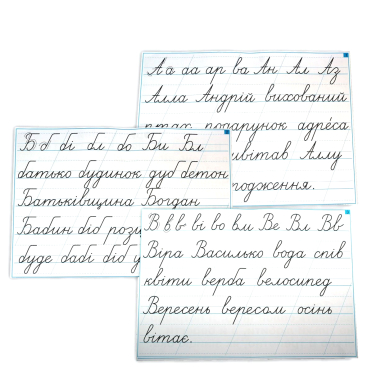 Аа аа ар ва Ан Ал Аз
Алла Андрій вихований
птах подарунок адреса
вітав Аллу
одження.
Б б бі бл бо Би Бл
батько будинок дуб бетон
Батьківщина Богдан
Бабин дід розу
буде бабі дід у
В в в ві во вм Ве Вл Вв
Віра Василько вода спів
квіти верба велосипед
Вересень вересом осінь
вітає.